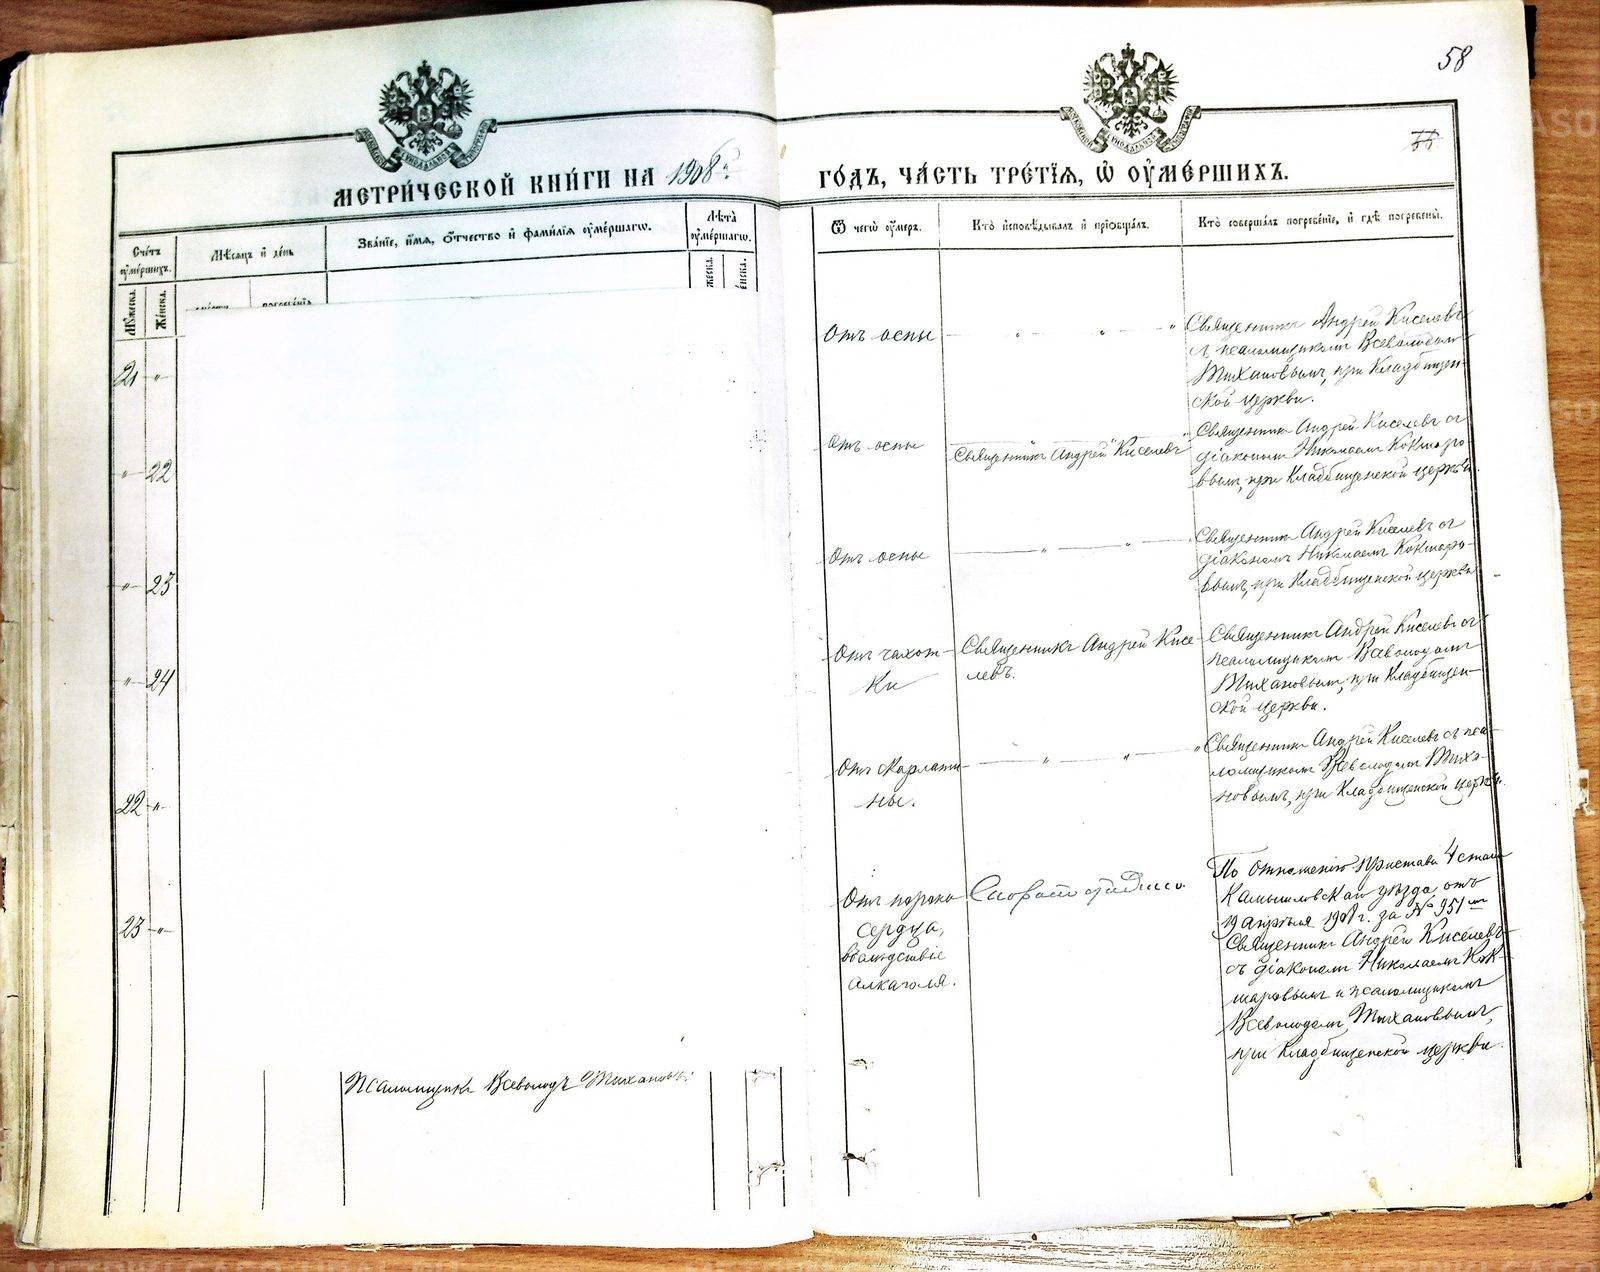 58
МЕТРИ́ЧЕСКОЙ КНИ́ГИ НА 1908 й
ГО́ДЪ, ЧА́СТЬ ТРЕ́ТЇЯ, Ѡ ОУ҆МЕ́РШИХЪ.
Сче́тъ оу҆ме́ршихъ.
Мꙋ́жеска.
Же́нска.
Мѣ́сяцъ и҆ де́нь
Зва́нїе, и҆́мя, ѻ҆́тчество и҆ фами́лїя оу҆ме́ршагѡ.
Лѣ́та оу҆ме́ршагѡ.
Ѿ чегѡ̀ оу҆́меръ.
Кто̀ и҆сповѣ́дывалъ и҆ прїѡбща́лъ.
Кто̀ соверша́лъ погребе́нїе, и҆ гдѣ̀ погребены̀.
21 - "
Отъ оспы
Священникъ Андрей Киселевъ
съ псаломщикомъ Всеволодомъ
Тихановымъ, при Кладбищен-
ской церкви.
" 22
Отъ оспы
Священникъ Андрей Киселевъ
Священникъ Андрей Киселевъ съ
діакономъ Николаемъ Кокшаро-
вымъ, при Кладбищенской церкви.
" 23
Отъ оспы
Священникъ Андрей Киселевъ съ
діакономъ Николаемъ Кокшаро-
вымъ, при Кладбищенской церкви
" 24
Отъ чахот-
ки
Священникъ Андрей Кисе-
левъ.
Священникъ Андрей Киселевъ съ
псаломщикомъ Всеволодомъ
Тихановымъ, при Кладбищен-
ской церкви.
22 "
Отъ скарлати-
ны.
Священникъ Андрей Киселевъ съ пса-
ломщикомъ Всеволодомъ Тиха-
новымъ, при Кладбищенской церкви.
23 "
Отъ порока
сердца,
вслѣдствіе
алкаголя.
По отношенію Пристава 4 стана
Камышловскаго уѣзда отъ
19 апрѣля 1908 г. за № 951
Священникъ Андрей Киселевъ
съ діакономъ Николаемъ Кок-
шаровымъ и псаломщикомъ
Всеволодомъ Тихановымъ,
при Кладбищенской церкви.
Псаломщикъ Всеволодъ Тихановъ.